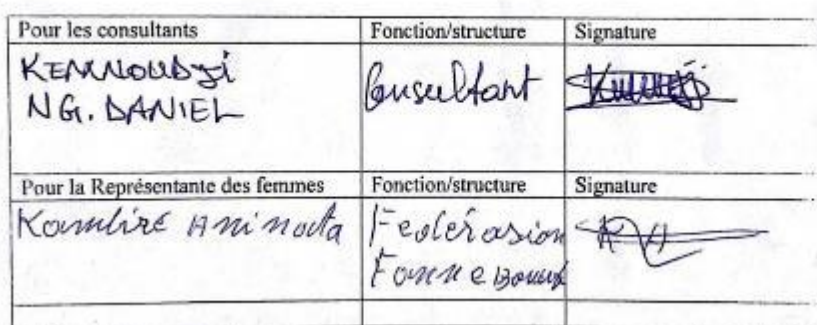 Pour les consultants Fonction/structure Signature
KEMNOUDJi Consultant
NG. DANIEL
Pour la Représentante des femmes Fonction/structure Signature
Kambiré Aminata Fedérasion